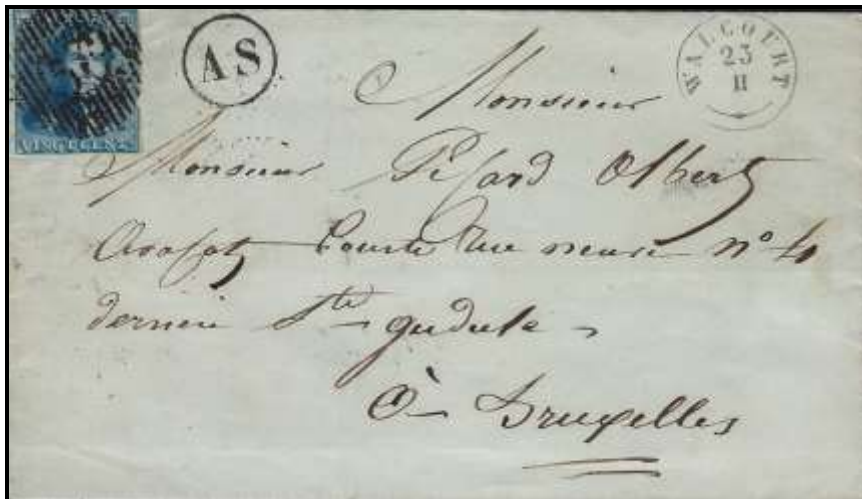 VINGT CENTS
A S
WALCOURT
25
II
Monsieur
Monsieur Albert
Courte Rue neuve n° 4
derriere Ste gudule
à Bruxelles